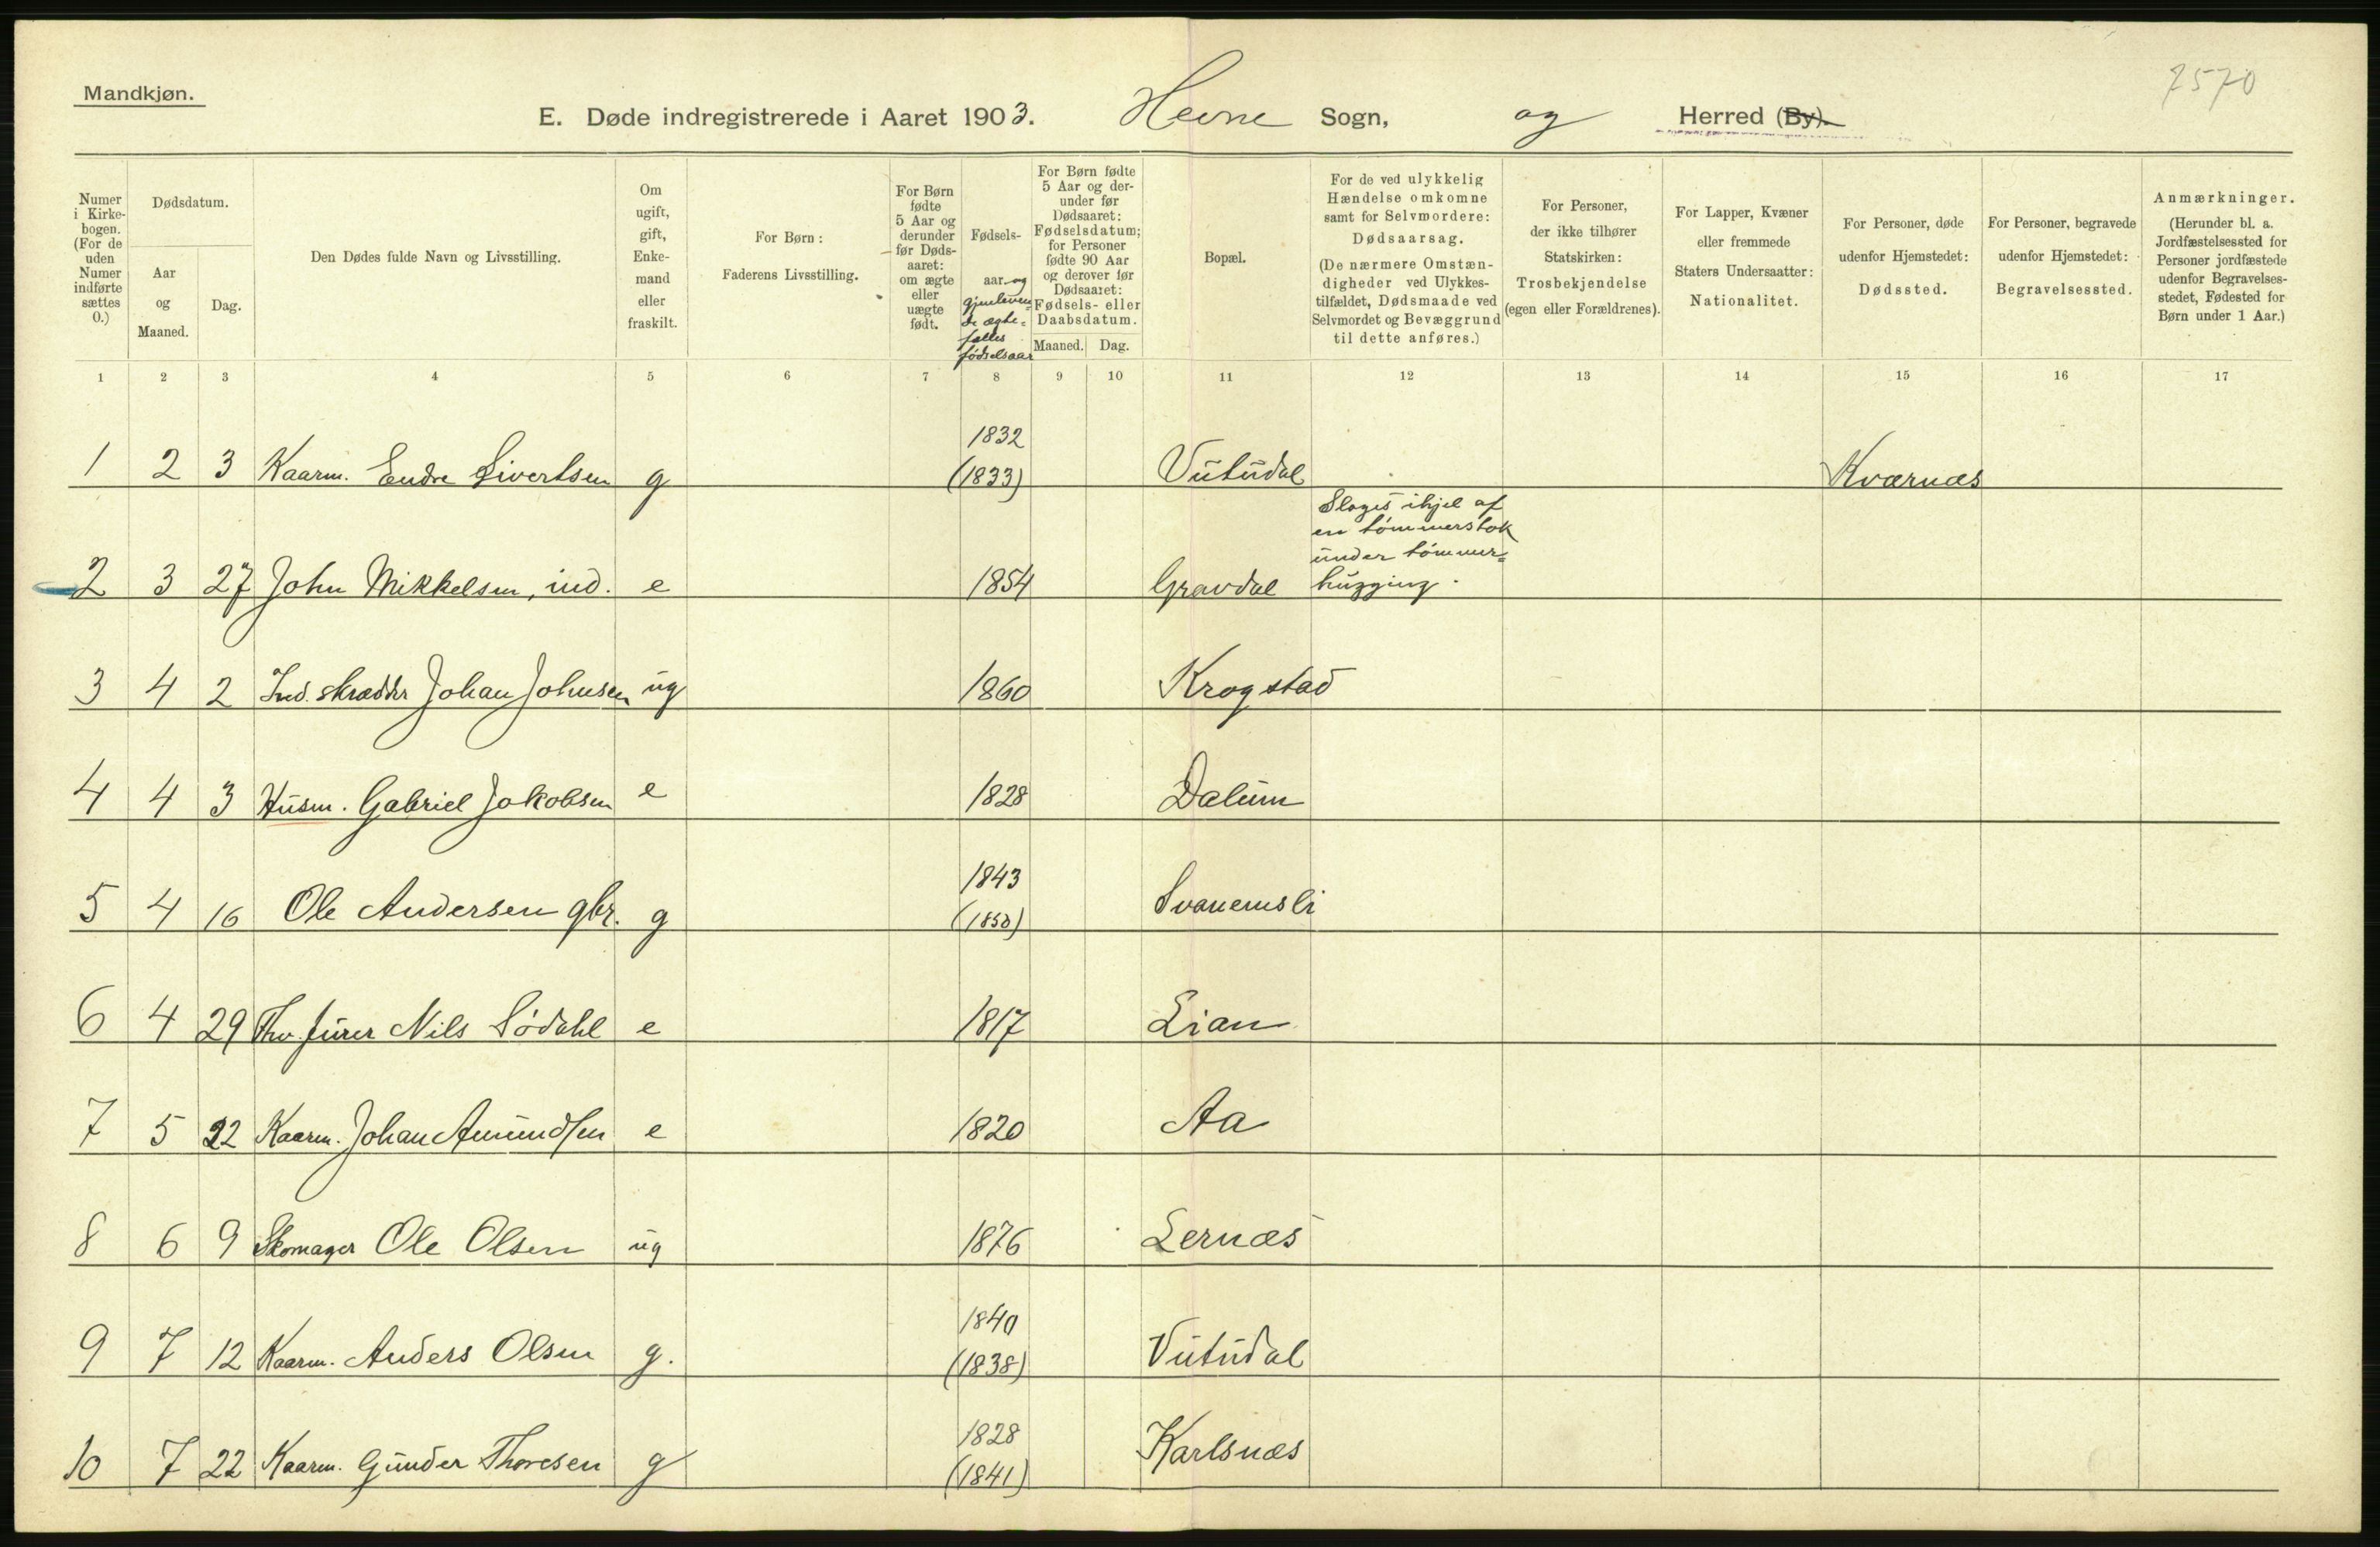 Mandkjøn.
7570
E. Døde indregistrerede i Aaret 1903. Hevne Sogn, og Herred (By).
Numer i Kirkebogen. (For de uden Numer indførte sættes 0.)
Dødsdatum.
Aar og Maaned.
Dag.
Den Dødes fulde Navn og Livsstilling.
Om ugift, gift, Enkemand eller fraskilt.
For Børn: Faderens Livsstilling.
For Børn fødte 5 Aar og derunder før Dødsaaret: om ægte eller uægte født.
Fødselsaar og gjenlevende ægtefælles fødselsaar
For Børn fødte 5 Aar og derunder før Dødsaaret: Fødselsdatum; for Personer fødte 90 Aar og derover før Dødsaaret: Fødsels- eller Daabsdatum.
Maaned. Dag.
Bopæl.
For de ved ulykkelig Hændelse omkomne samt for Selvmordere: Dødsaarsag. (De nærmere Omstændigheder ved Ulykkestilfældet, Dødsmaade ved Selvmordet og Bevæggrund til dette anføres.)
For Personer, der ikke tilhører Statskirken: Trosbekjendelse (egen eller Forældrenes).
For Lapper, Kvæner eller fremmede Staters Undersaatter: Nationalitet.
For Personer, døde udenfor Hjemstedet: Dødssted.
For Personer, begravede udenfor Hjemstedet: Begravelsessted.
Anmærkninger. (Herunder bl. a. Jordfæstelsessted for Personer jordfæstede udenfor Begravelsesstedet, Fødested for Børn under 1 Aar.)
1 2 3 4 5 6 7 8 9 10 11 12 13 14 15 16 17
1 2 3 Kaarm. Endre Sivertsen g 1832 (1833) Vutudal Kværnæs
2 3 27 John Mikkelsen, ind. e 1854 Gravdal Sloges ihjel af en tømmerstok under tømmerhugging.
3 4 2 Ind. skrædder Johan Johnsen ug 1860 Krogstad
4 4 3 Husm. Gabriel Jakobsen e 1828 Dalum
5 4 16 Ole Andersen gbr. g 1843 (1850) Svanemsli
6 4 29 Nils Sødahl e 1817 Lian
7 5 22 Kaarm. Johan Amundsen e 1820 Aa
8 6 9 Skomager Ole Olsen ug 1876 Lernæs
9 7 12 Kaarm. Anders Olsen g. 1840 (1838) Vutudal
10 7 22 Kaarm. Gunder Thoresen g 1828 (1841) Karlsnæs